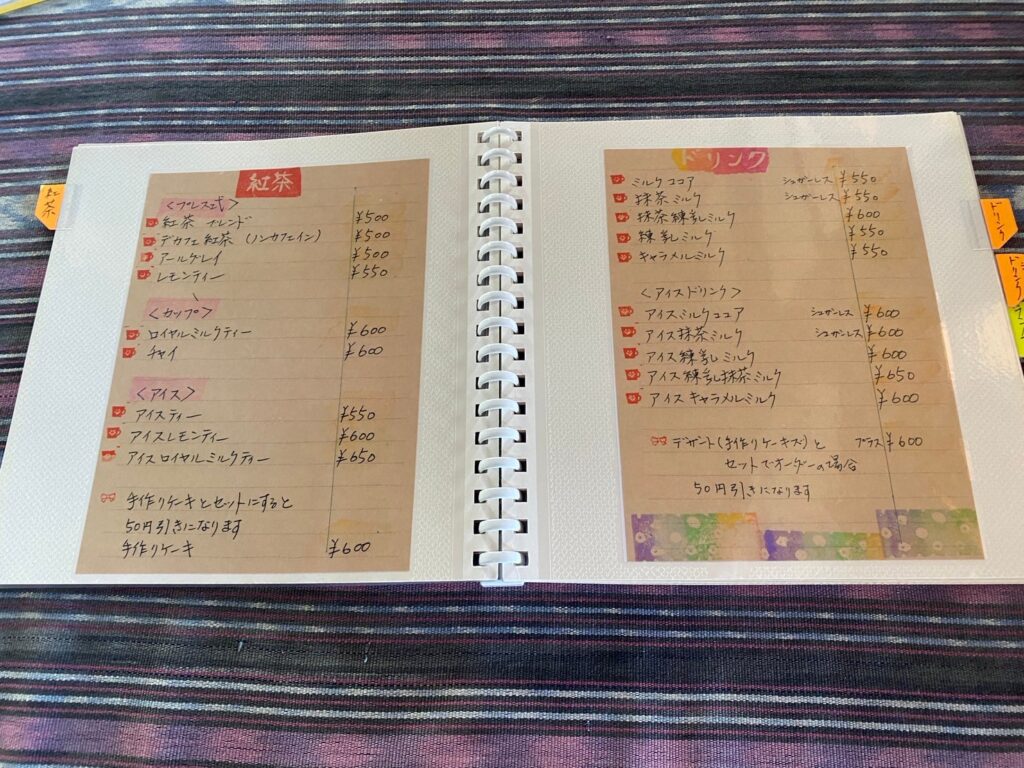 紅茶
<プレス式>
紅茶 ブレンド ¥500
デカフェ紅茶 (ノンカフェイン) ¥500
アールグレイ ¥500
レモンティー ¥550
<カップ>
ロイヤルミルクティー ¥600
チャイ ¥600
<アイス>
アイスティー ¥550
アイスレモンティー ¥600
アイスロイヤルミルクティー ¥650
手作りケーキとセットにすると
50円引きになります
手作りケーキ ¥600
紅茶
ドリンク
ミルクココア シュガーレス ¥550
抹茶ミルク シュガーレス ¥550
抹茶練乳ミルク ¥600
練乳ミルク ¥550
キャラメルミルク ¥550
<アイスドリンク>
アイスミルクココア シュガーレス ¥600
アイス抹茶ミルク シュガーレス ¥600
アイス練乳ミルク ¥600
アイス練乳抹茶ミルク ¥650
アイスキャラメルミルク ¥600
デザート(手作りケーキズ)と プラス ¥600
セットでオーダーの場合
50円引きになります
ドリンク
ドリンク